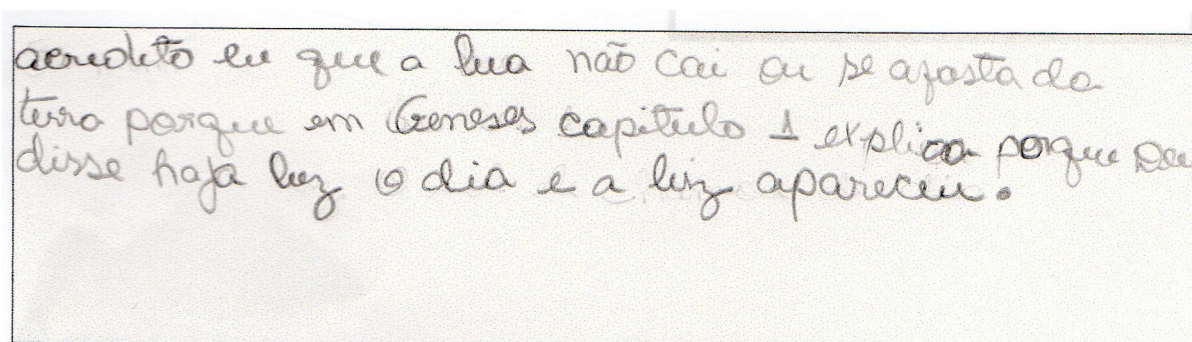 acredito eu que a lua não cai ou se afasta da
terra porque em Geneses capitulo 1 explica porque Deu
disse haja luz o dia e a luz apareceu.